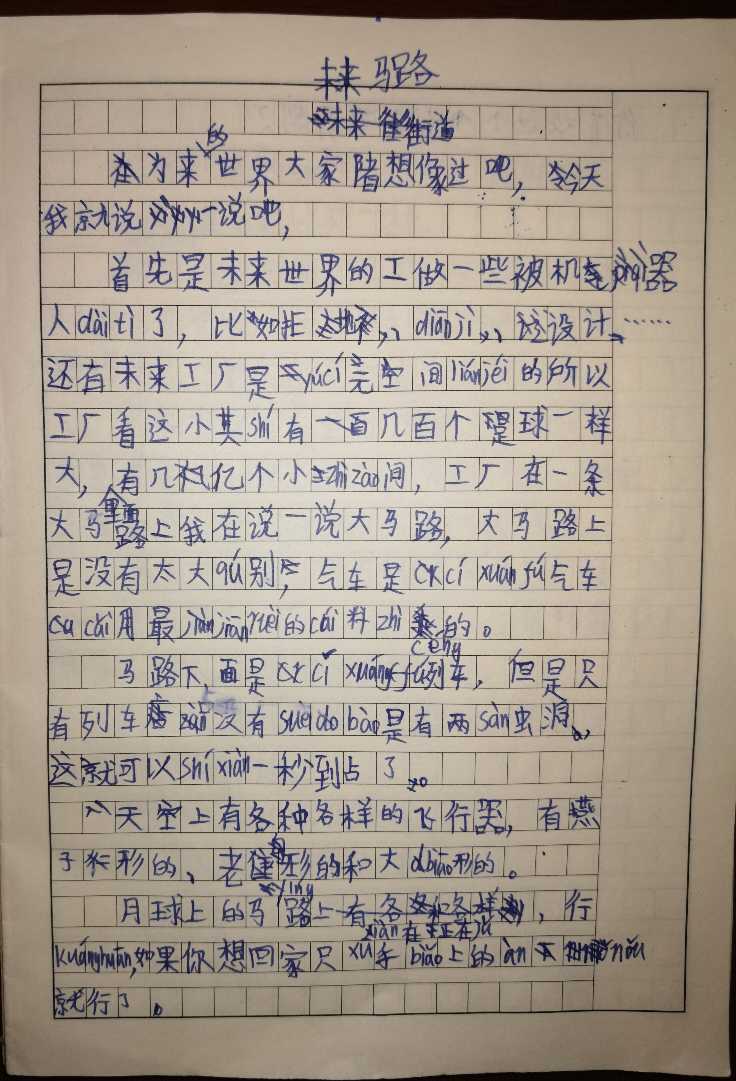 未来马路
未来街道
在为来的世界大家睹想像过吧，今天
我就说一说吧，
首先是未来世界的工做一些被机器
人dài tì了，比如扫地，diàn jì，设计……
还有未来工厂是yú cí 空间lián jéi的所以
工厂看这小其shí有一百几百个星球一样
大，里面有几亿个小zhì zào间，工厂在一条
大马路上我在说一说大马路，大马路上
是没有太大qú别，气车是cí xuán fú气车
cā cái用最jiàn 的cái料zhì chéng的。
马路下面是cí xuáng fú列车，但是只
有列车zàn没有suì dào bào是有两sàn虫洞
这就可以shí xiàn一秒到占了
天空上有各种各样的飞行器，有燕
子形的、老鹰形的和大biāo形的。
月球上的马路上有各，行
kuáng huān，如果你想回家只xū手biǎo上的àn niǔ
就行了。